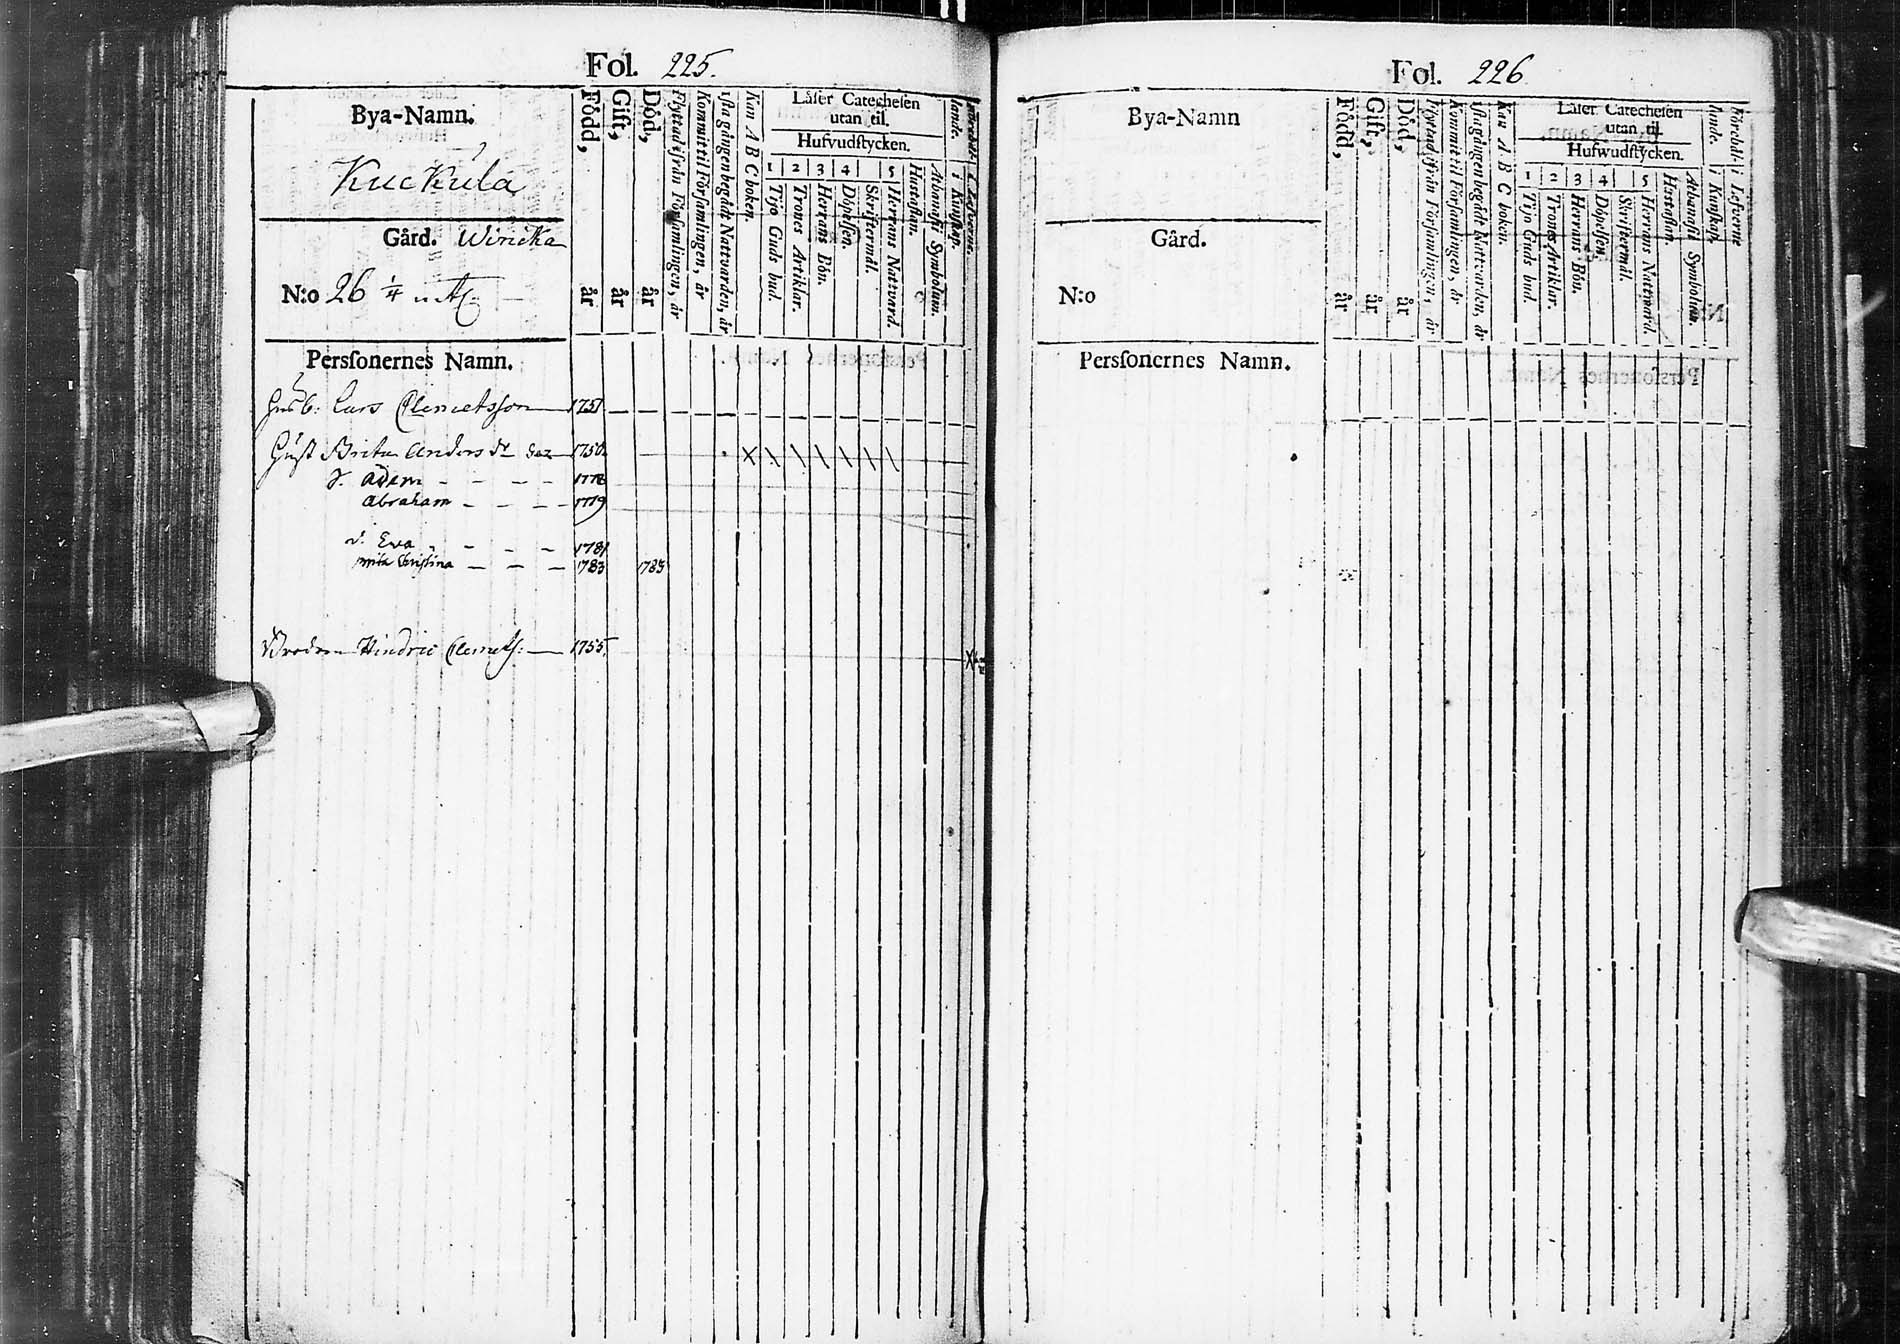 Fol. 225.
Bya-Namn.
Kuckula
Gård. Winika
N:o 26 1/4
Perſonernes Namn.
Född, år
Gift, år
Död, år
Flyttad ifrån Förſamlingen, år
Kommit til Förſamlingen, år
1ſta gången begådt Nattvarden, år
Kan A B C boken.
Läſer Catecheſen
utan til.
Hufvudſtycken.
1 2 3 4 5
Tijo Guds bud.
Trones Artiklar.
Herrans Bön.
Döpelſen.
Skriftermål.
Herrans Nattvard.
Huſtaflan.
Athanaſii Symbolum.
i Kunſkap.
Husb: Lars Clemetsson 1751
Hust Brita Anders dr 1750
S. Adam - - - - 1778
Abraham - - - - 1779
d. Eva - - - - 1781
Christina - - - 1783 1783
Brodren Hindric Clemets: 1755.
Fol. 226
Bya-Namn
Gård.
N:o
Perſonernes Namn.
Född, år
Gift, år
Död, år
Flyttad ifrån Förſamlingen, år
Kommit til Förſamlingen, år
1ſta gången begådt Nattvarden, år
Kan A B C boken.
Läſer Catecheſen
utan til.
Hufwudſtycken.
1 2 3 4 5
Tijo Guds bud.
Trones Artiklar.
Herrans Bön.
Döpelſen.
Skriftermål.
Herrans Nattvard.
Huſtaflan.
Athanaſii Symbolum.
i Kunſkap.
i Lefverne